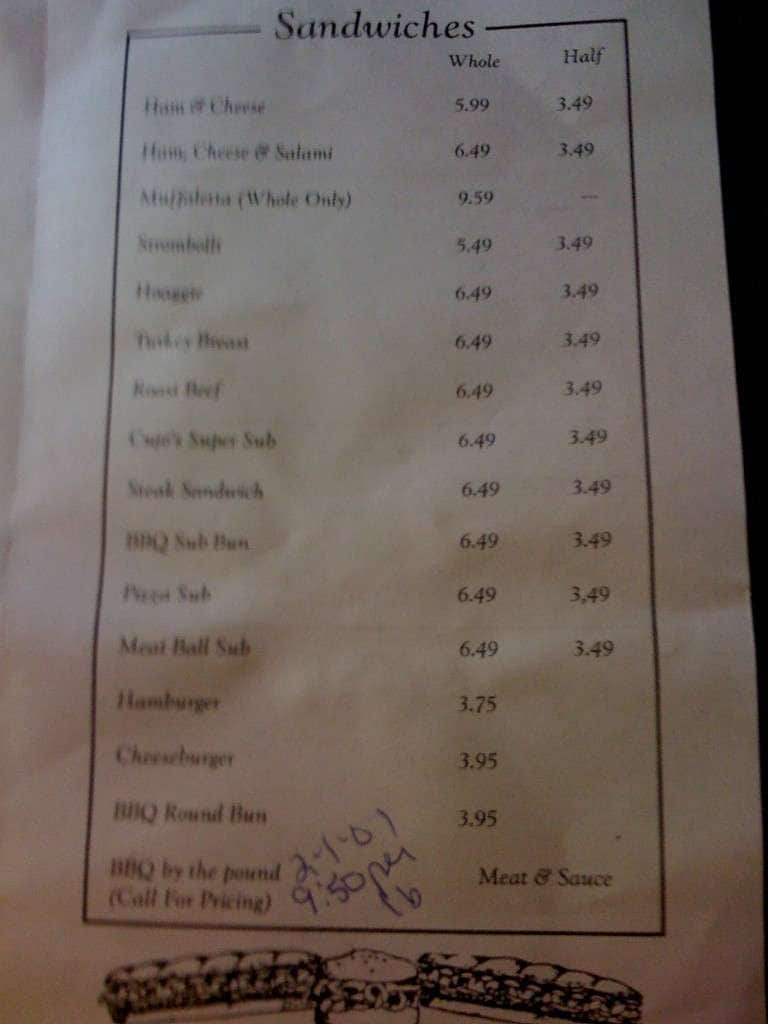 Sandwiches
Whole Half
Ham & Cheese 5.99 3.49
Ham, Cheese & Salami 6.49 3.49
Muffaletta (Whole Only) 9.59 —
Strombolli 5.49 3.49
Hoaggie 6.49 3.49
Turkey Breast 6.49 3.49
Roast Beef 6.49 3.49
Cujo's Super Sub 6.49 3.49
Steak Sandwich 6.49 3.49
BBQ Sub Bun 6.49 3.49
Pizza Sub 6.49 3,49
Meat Ball Sub 6.49 3.49
Hamburger 3.75
Cheeseburger 3.95
BBQ Round Bun 3.95
BBQ by the pound Meat & Sauce
(Call For Pricing)
2-1-01
9.50 per
lb